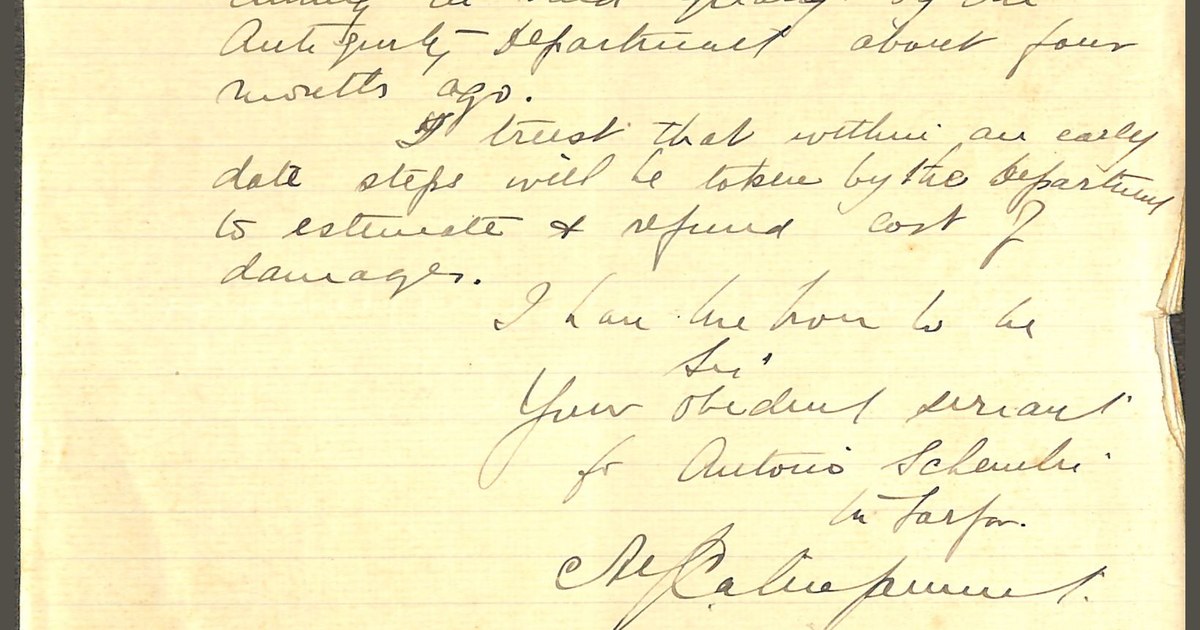 by the
Antiquity Department about four
months ago.
I trust that within an early
date steps will be taken by the Department
to estimate & refund cost of
damages.
I have the honor to be
Sir,
Your obedient servant
for Antonio Schembri